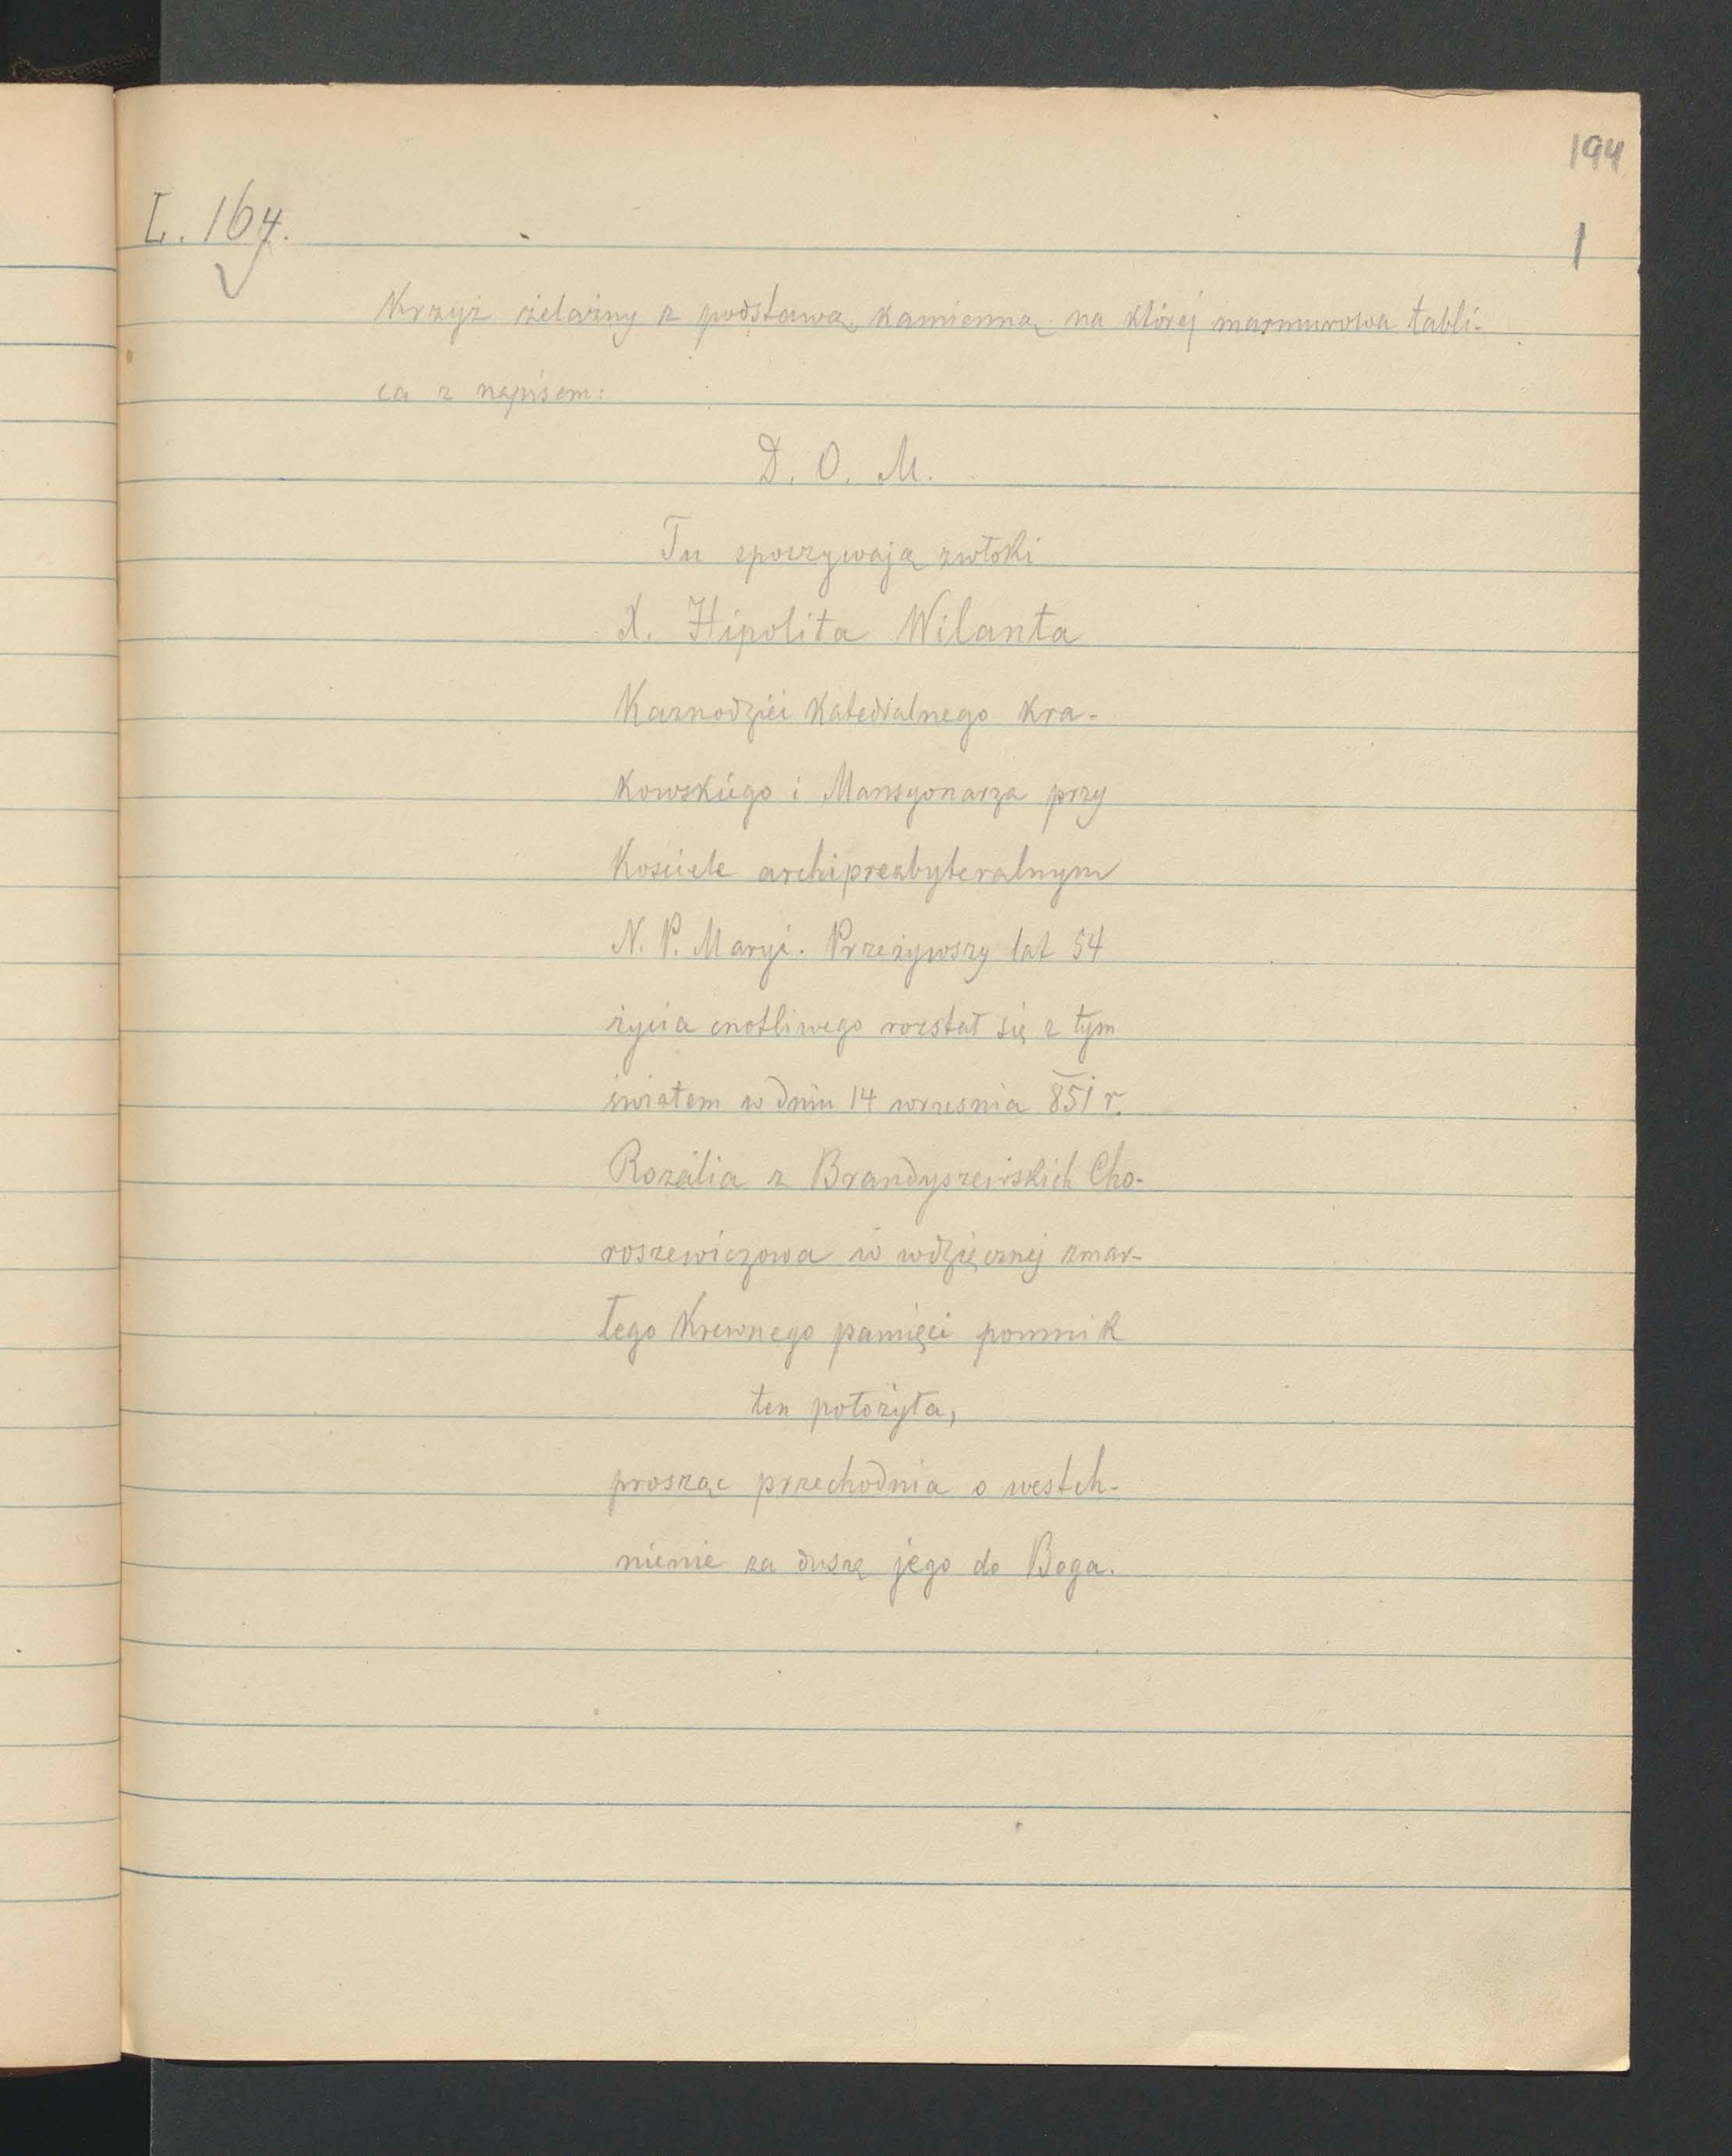 194
L. 164.
1
Krzyż żelazny z podstawą kamienną na której marmurowa tabli-
ca z napisem:
D. O. M.
Tu spoczywają zwłoki
X. Hipolita Wilanta
Kaznodziei Katedralnego Kra-
kowskiego i Mansyonarza przy
Kościele archipresbyteralnym
N. P. Maryi. Przeżywszy lat 54
życia cnotliwego rozstał się z tym
światem w dniu 14 września 851 r.
Rozalia z Brandyszewskich Cho-
roszewiczowa w wdzięcznej zmar-
łego Krewnego pamięci pomnik
ten położyła,
prosząc przechodnia o westch-
nienie za duszę jego do Boga.